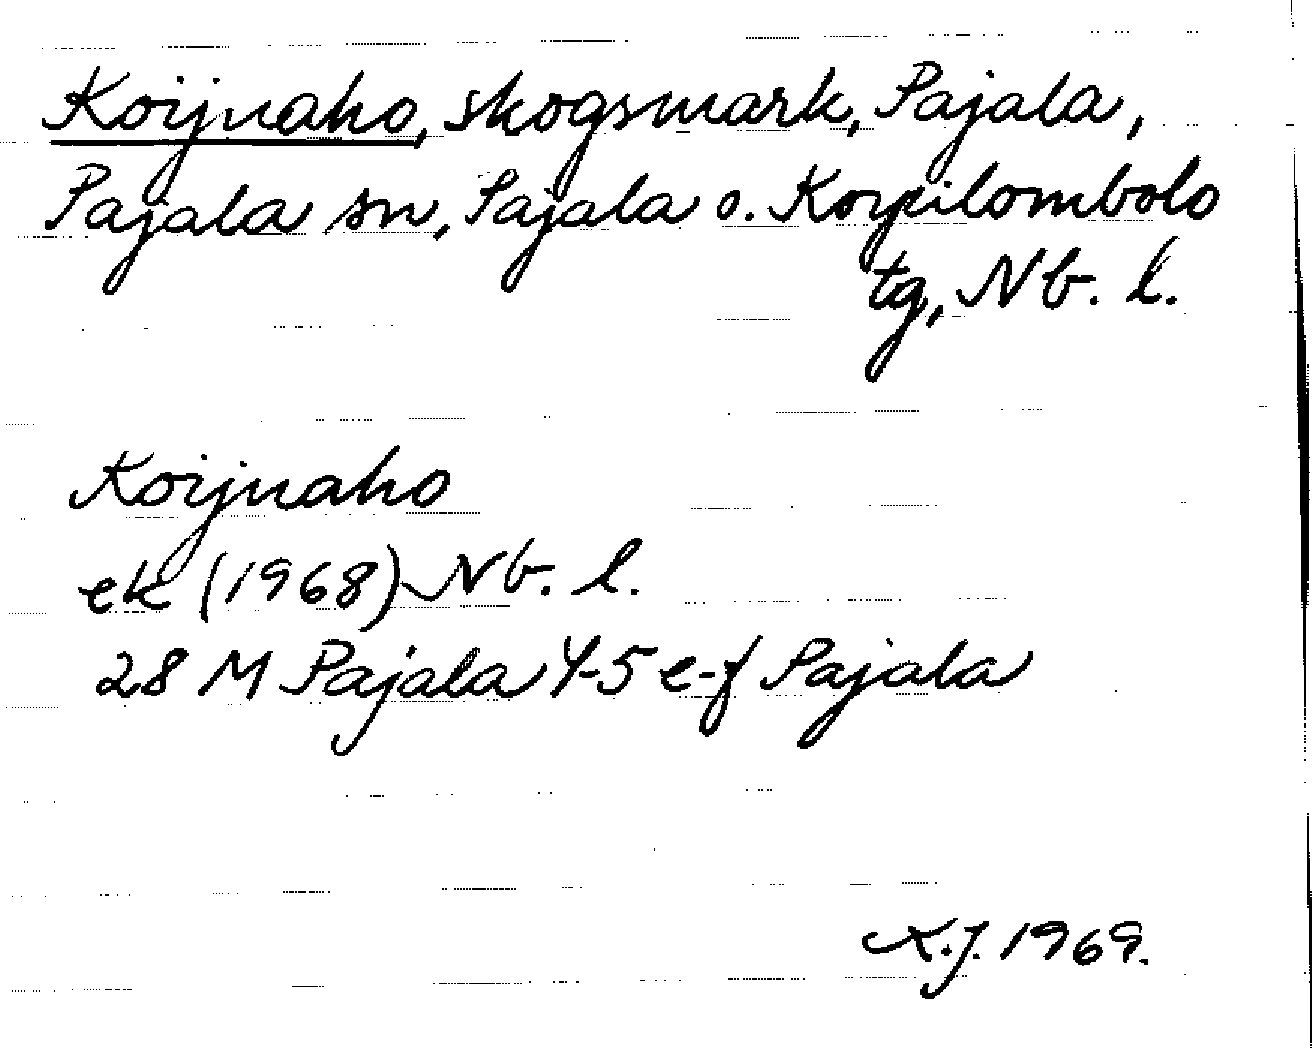 Koijnaho, skogsmark, Pajala,
Pajala sn, Pajala o. Korpilombolo
tg, Nb. l.
Koijnaho
ek (1968) Nb. l.
28 M Pajala 4-5 e-f Pajala
K.J. 1969.